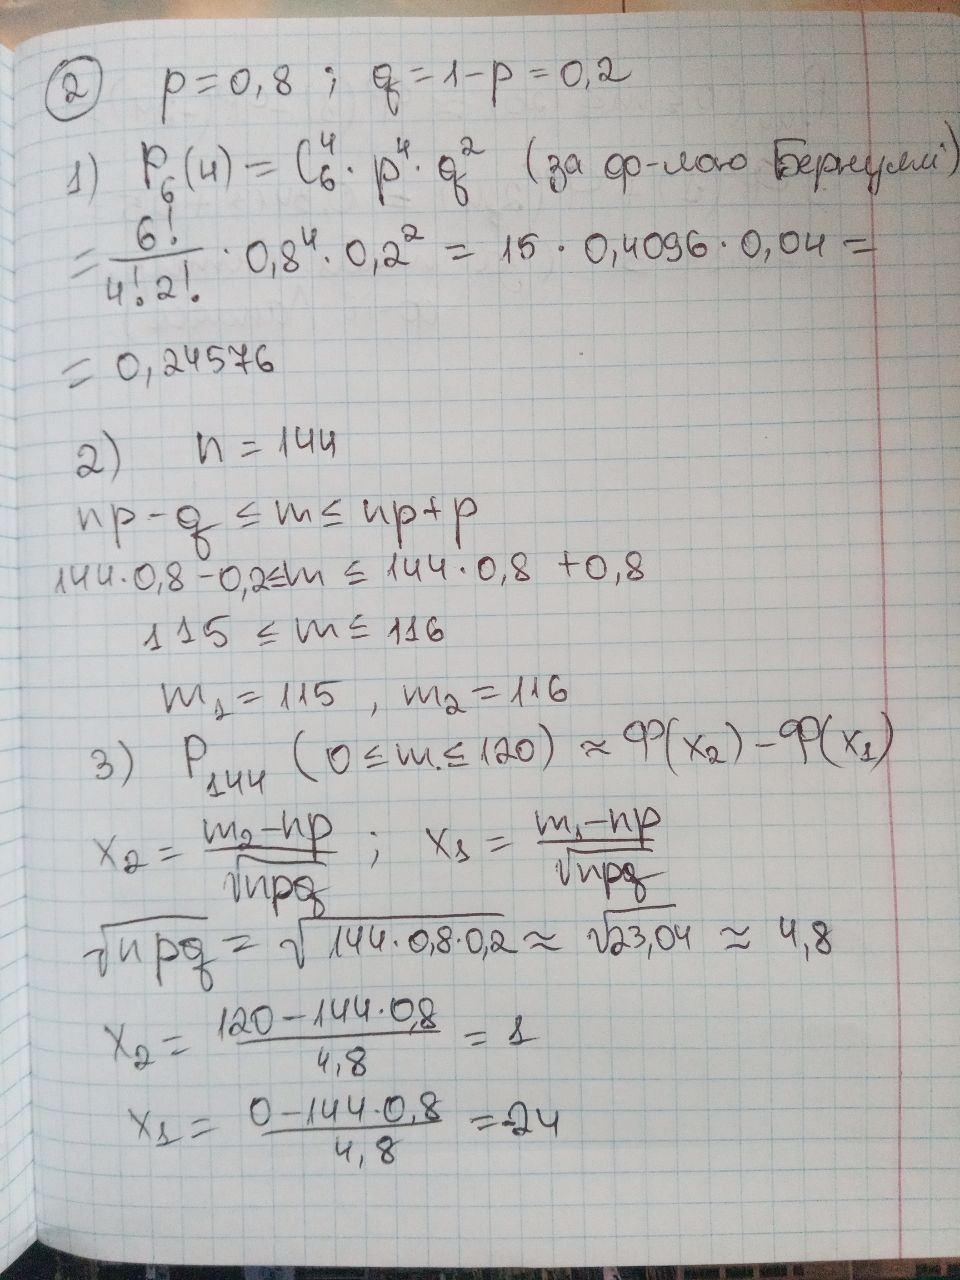 2 p = 0,8 ; q = 1 - p = 0,2
1) P₆(4) = C₆⁴ · p⁴ · q² (за ф-лою Бернуллі)
= 6!/4!2! · 0,8⁴ · 0,2² = 15 · 0,4096 · 0,04 =
= 0,24576
2) n = 144
np - q ≤ m ≤ np + p
144 · 0,8 - 0,2 ≤ m ≤ 144 · 0,8 + 0,8
115 ≤ m ≤ 116
m₁ = 115 , m₂ = 116
3) P₁₄₄ ( 0 ≤ m ≤ 120 ) ≈ Ф(x₂) - Ф(x₁)
x₂ = m₂ - np/√npq ; x₁ = m₁ - np/√npq
√npq = √144 · 0,8 · 0,2 ≈ √23,04 ≈ 4,8
x₂ = 120 - 144 · 0,8/4,8 = 1
x₁ = 0 - 144 · 0,8/4,8 = -24